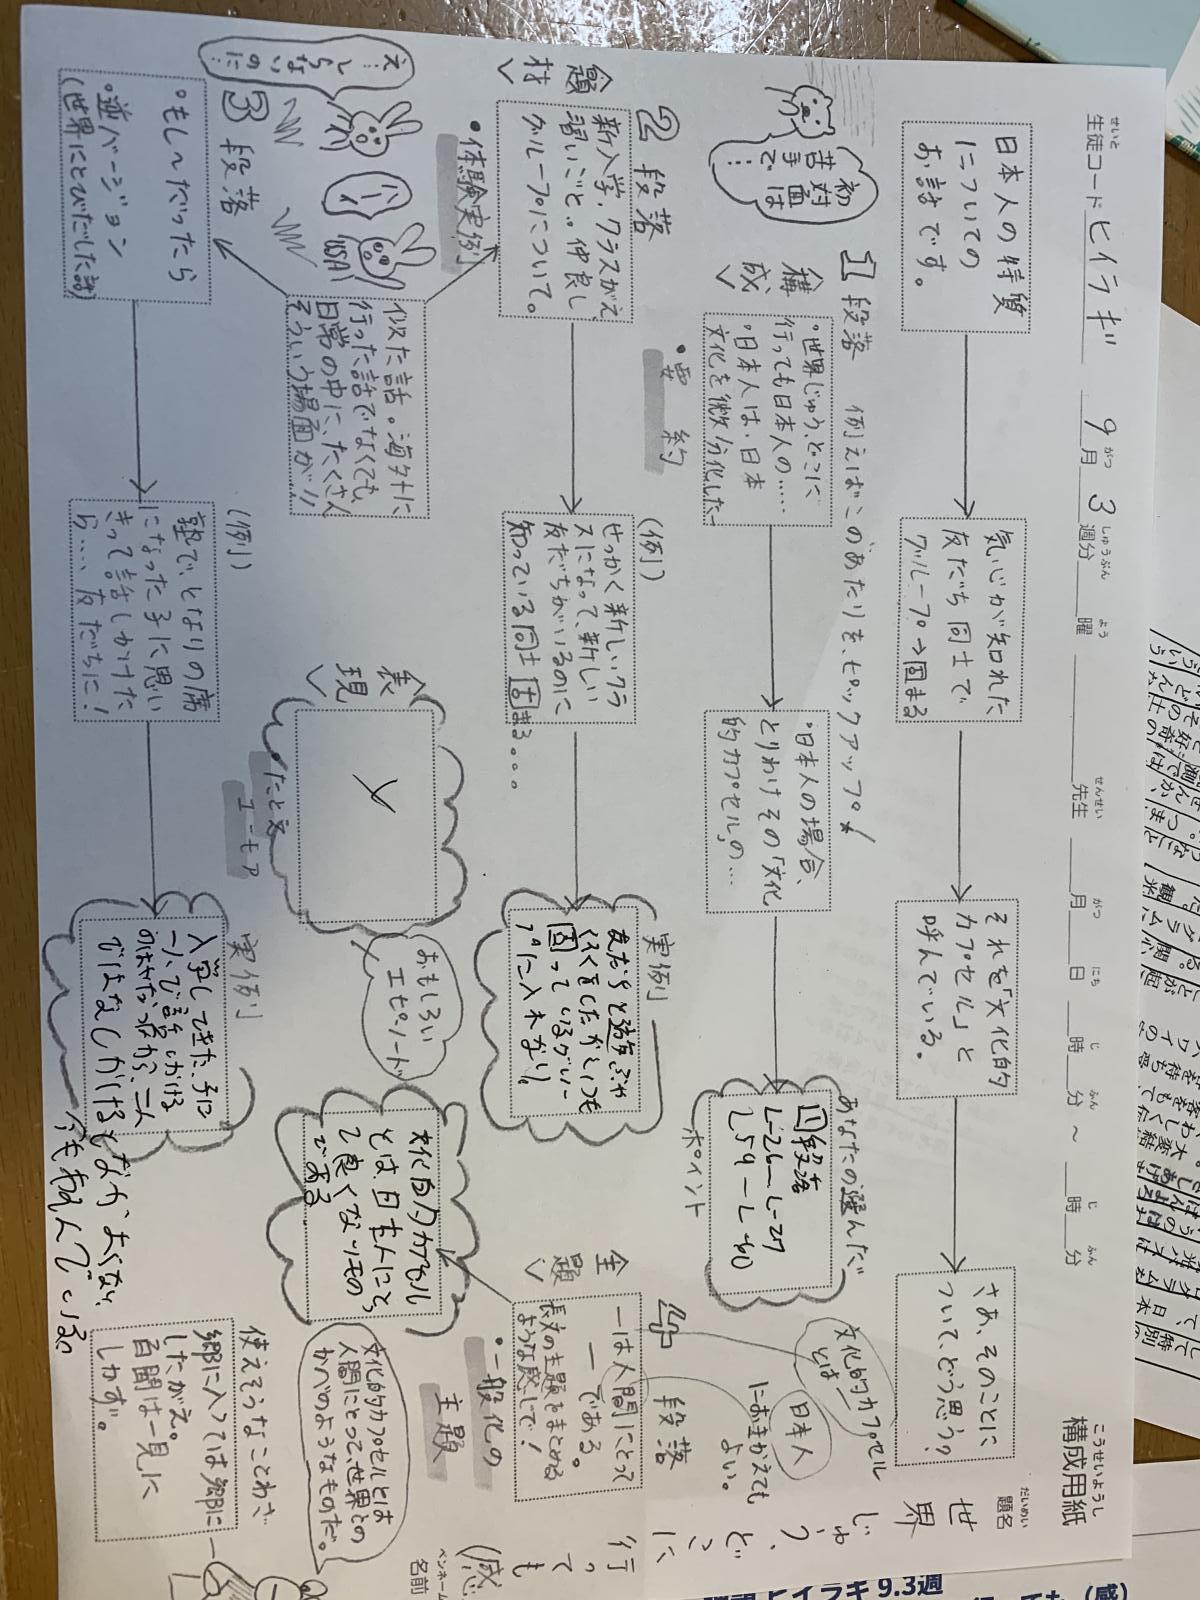 構成用紙
生徒コード ヒイラギ 9月 3週分 曜 先生 月 日 時 分 ~ 時 分
題名
世界じゅう、どこに行っても
(感)
ペンネーム
名前
日本人の特質
についての
お話です。
気心が知れた
友だち同士で
グループ→固まる
それを「文化的
カプセル」と
呼んでいる。
さあ、そのことに
ついて、どう思う?
1段落 例えばこのあたりを、ピックアップ!
構成
・要約
初対面は
苦手で…
・世界じゅう、どこに
行っても日本人の……
・日本人は、日本
文化を微分化した
・日本人の場合、
とりわけその「文化
的カプセル」の…
あなたの選んだ
ポイント
1段落
L26〜L27
L59〜L60
2段落
題材
・体験実例
新入学、クラスがえ
習いごと…仲良し
グループについて。
(例)
せっかく新しいクラ
スになって、新しい
友だちがいるのに
知っている同士固まる。。。
実例
友だちと遊ぶや
固っているグルー
プに入れない。
似た話。海外に
行った話でなくても、
日常の中に、たくさん
そういう場面が!!
え…しらないのに…
ハーイ
USA
3段落
・もし〜だったら
・逆バージョン
(世界にとびだした話)
(例)
塾で、となりの席
になった子に思い
きって話しかけた
ら…、友だちに!
実例
入学してきた子に
一人で話しかける
ではなしかける
表現
たとえ
ユーモア
おもしろい
エピソード
4段落
主題
・一般化の
主題
文化的カプセル
とは
日本人
におきかえても
よい。
―は人間にとって
―である。
長文の主題をまとめる
ような感じで!
文化的カプセル
とは、日本人にとっ
て良くないもの
である
文化的カプセルとは
人間にとって、世界との
かべのようなものだ。
使えそうなことわざ
郷に入っては郷に
したがえ。
百聞は一見に
しかず。